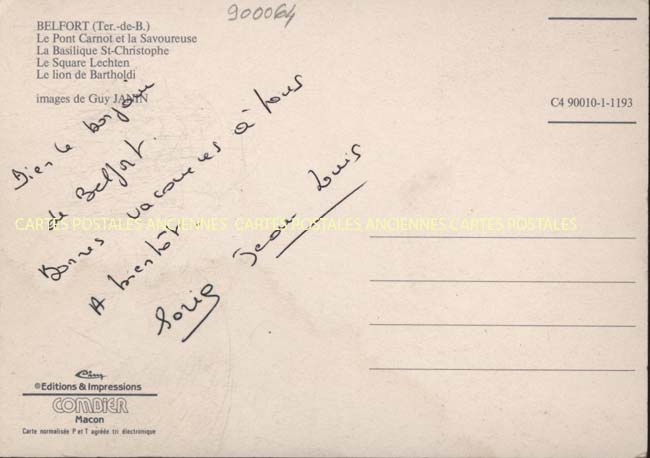 900064
BELFORT (Ter.-de-B.)
Le Pont Carnot et la Savoureuse
La Basilique St-Christophe
Le Square Lechten
Le lion de Bartholdi
images de Guy JANIN
C4 90010-1-1193
Bien le bonjour
de Belfort.
Bonnes vacances à tous
A bientôt.
Jean Louis
CARTES POSTALES ANCIENNES CARTES POSTALES ANCIENNES CARTES POSTALES
Cim
©Editions & Impressions
COMBIER
Macon
Carte normalisée P et T agréée tri électronique